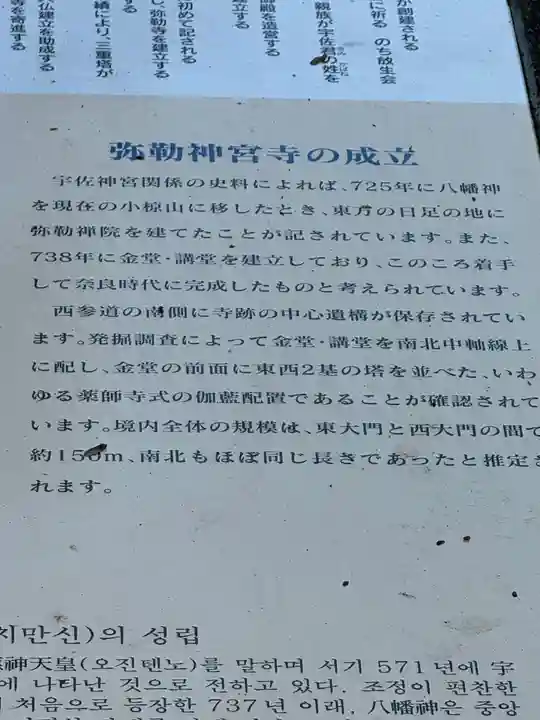 が勧建される
に祈る のち放生会
殿を造営する
立する
親族が宇佐君の姓を
かばね
初めて記される
し、弥勒寺を建立する
績により、三重塔が
仏建立を助成する
寺を寄進する
弥勒神宮寺の成立
宇佐神宮関係の史料によれば、725年に八幡神
を現在の小椋山に移したとき、東方の日足の地に
弥勒禅院を建てたことが記されています。また、
738年に金堂・講堂を建立しており、このころ着手
して奈良時代に完成したものと考えられています。
西参道の南側に寺跡の中心遺構が保存されてい
ます。発掘調査によって金堂・講堂を南北中軸線上
に配し、金堂の前面に東西2基の塔を並べた、いわ
ゆる薬師寺式の伽藍配置であることが確認されて
います。境内全体の規模は、東大門と西大門の間で
約150m、南北もほぼ同じ長さであったと推定さ
れます。
치만신)의 성립
神天皇(오진텐노)를 말하며 서기 571년에 宇
에 나타난 것으로 전하고 있다. 조정이 편찬한
처음으로 등장한 737년 이래, 八幡神은 중앙